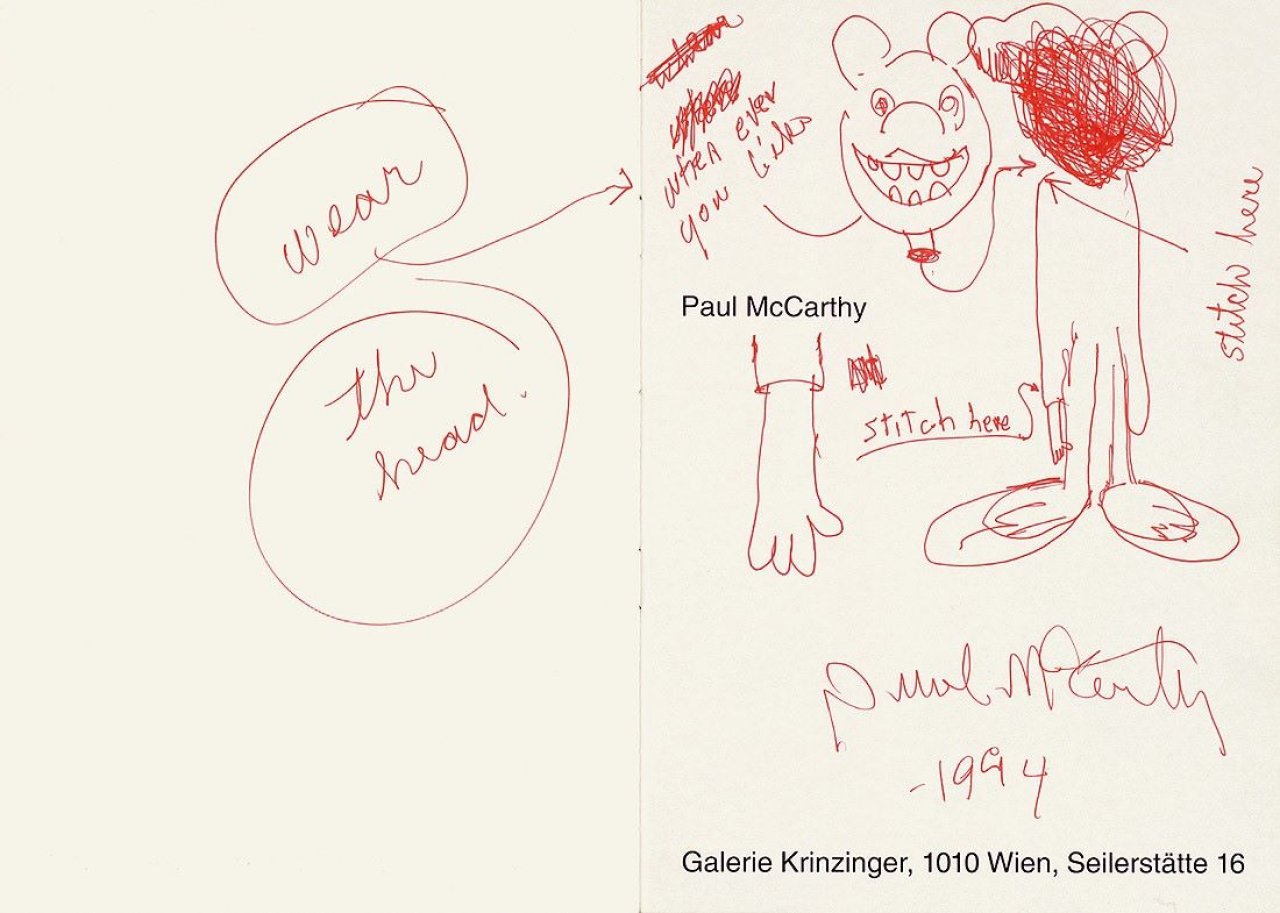 wear
the
head.
when ever
you like
stitch here
Paul McCarthy
stitch here
Paul McCarthy
-1994
Galerie Krinzinger, 1010 Wien, Seilerstätte 16